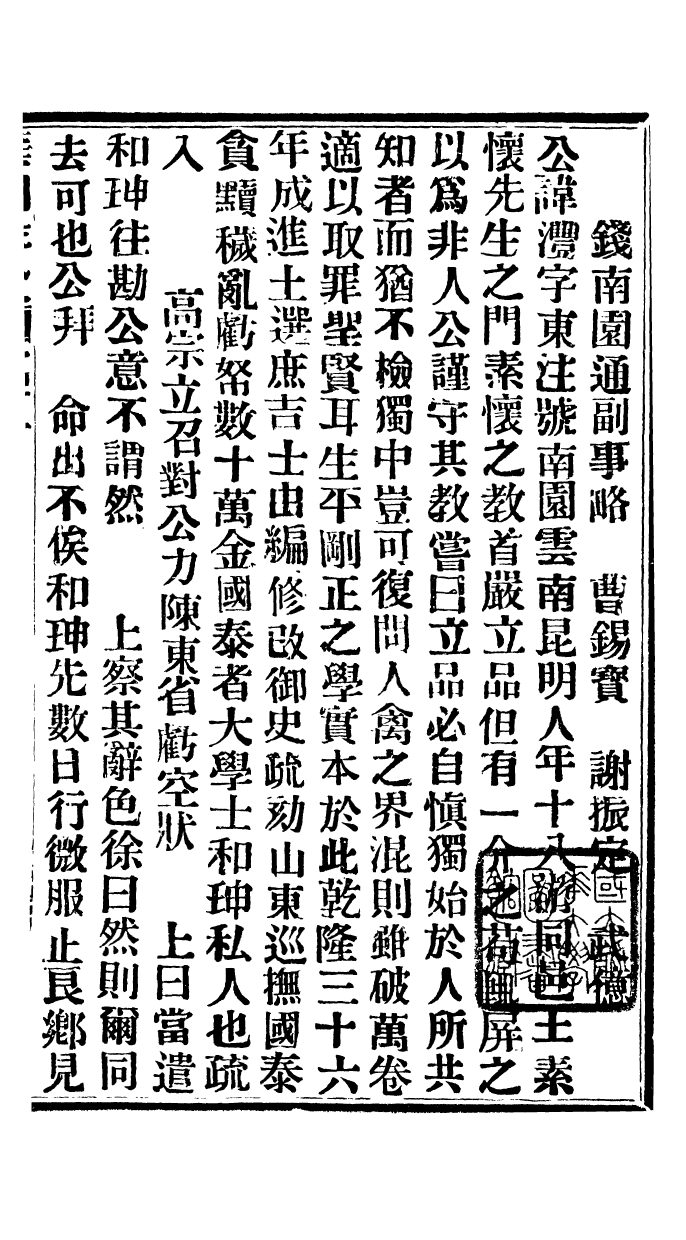 錢南園通副事略　曹錫寶　謝振定　武億
公諱灃字東注號南園雲南昆明人年十八遊同邑王素
懷先生之門素懷之教首嚴立品但有一介之苟輒屏之
以爲非人公謹守其教嘗曰立品必自愼獨始於人所共
知者而猶不檢獨中豈可復問人禽之界混則雖破萬卷
適以取罪聖賢耳生平剛正之學實本於此乾隆三十六
年成進士選庶吉士由編修改御史疏劾山東巡撫國泰
貪黷穢亂虧帑數十萬金國泰者大學士和珅私人也疏
入　高宗立召對公力陳東省虧空狀　上曰當遣
和珅往勘公意不謂然　上察其辭色徐曰然則爾同
去可也公拜　命出不俟和珅先數日行微服止良鄉見